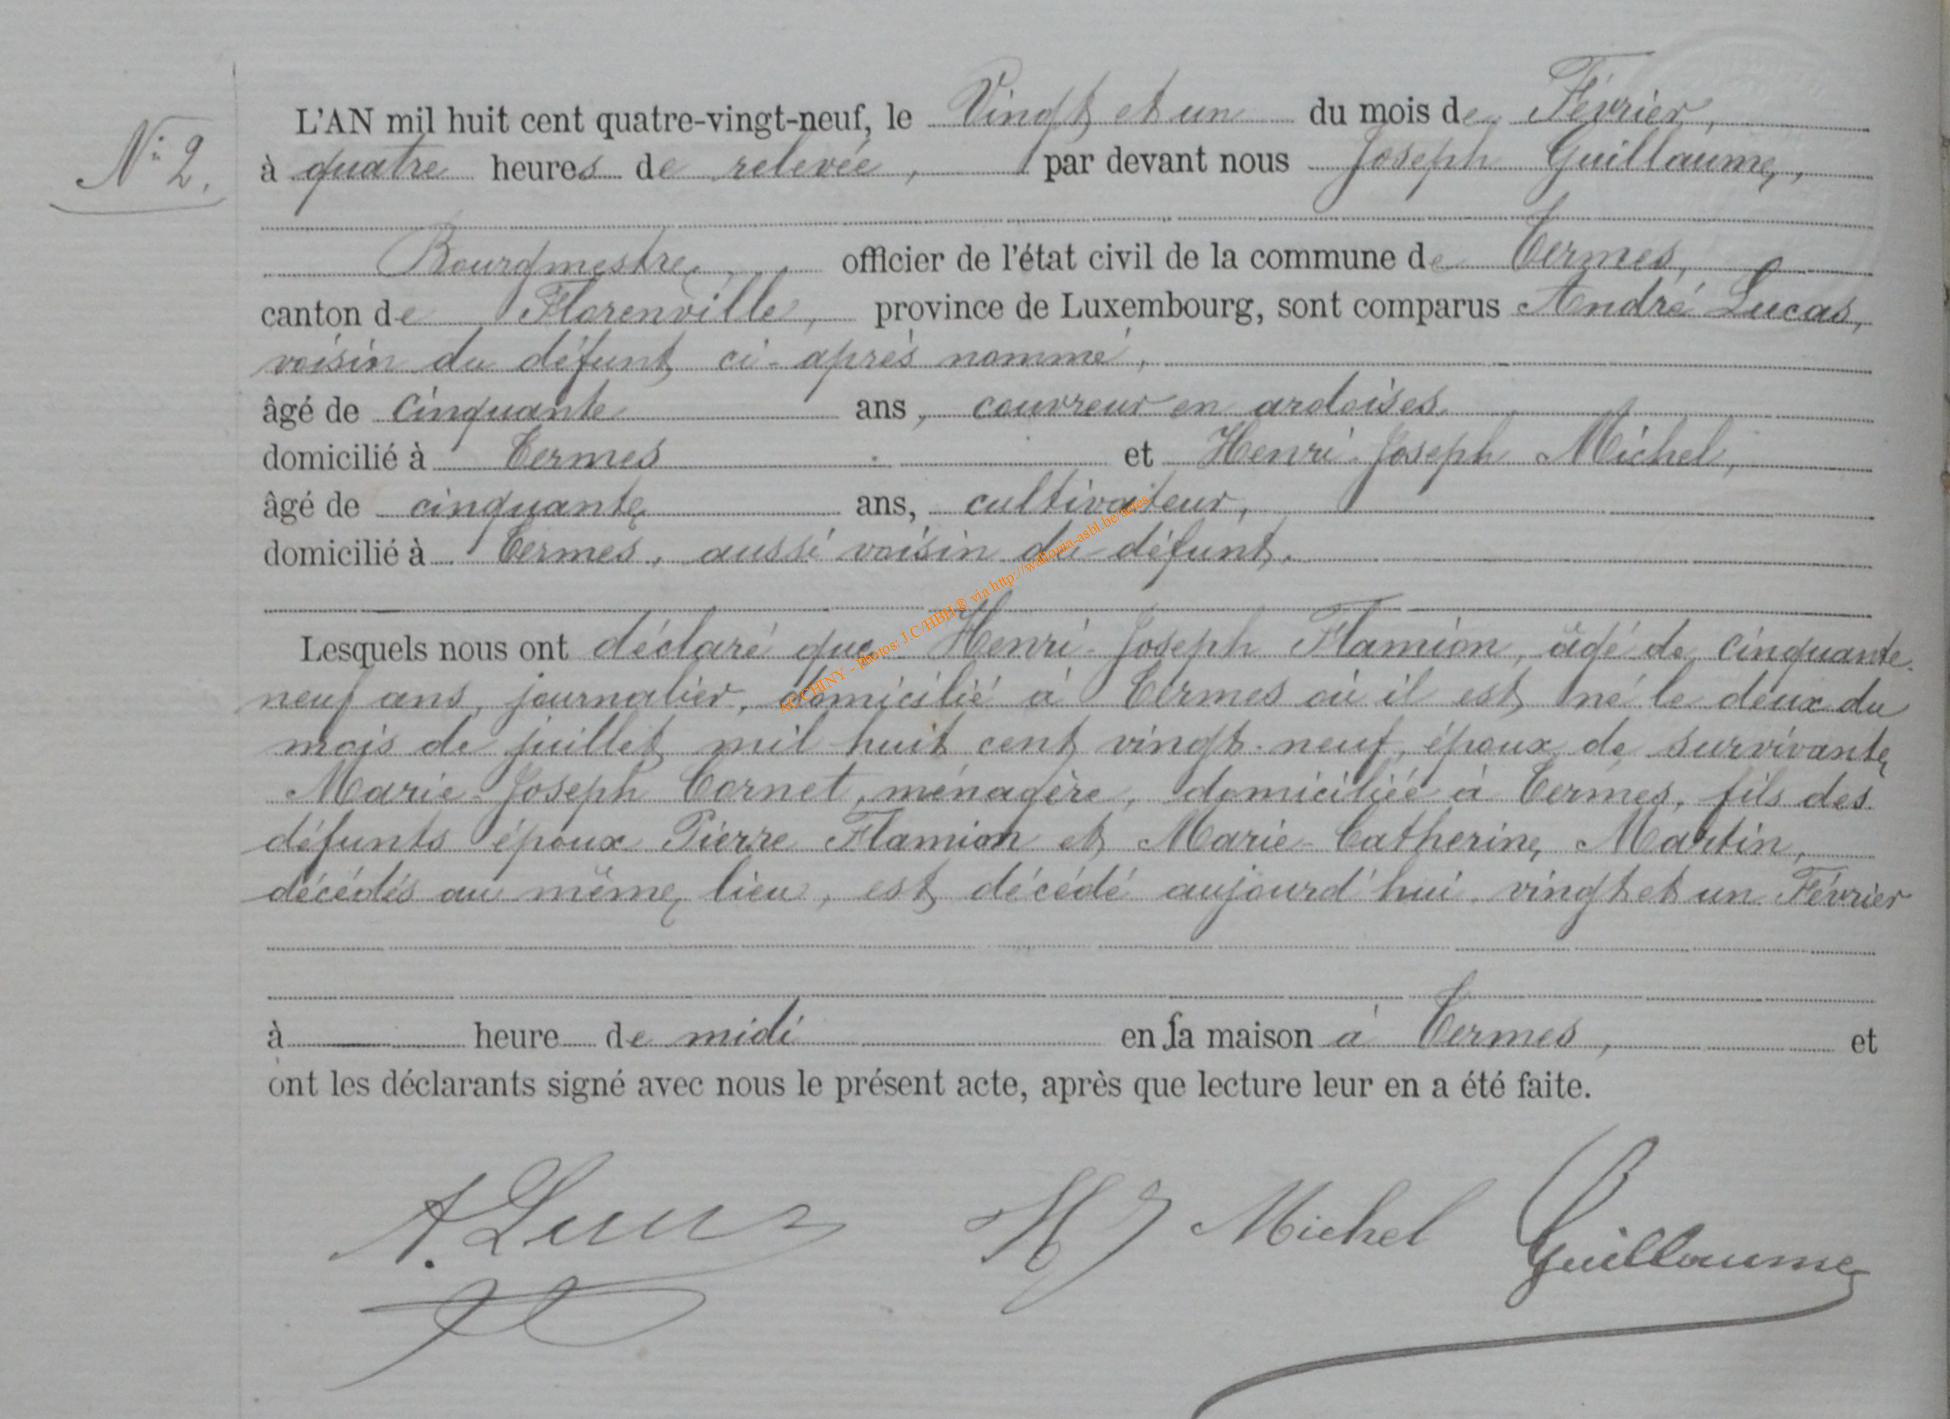 N° 2.
L'AN mil huit cent quatre-vingt-neuf, le Vingt et un du mois de Février,
à quatre heures de relevée, par devant nous Joseph Guillaume,
Bourgmestre, officier de l'état civil de la commune de Termes,
canton de Florenville, province de Luxembourg, sont comparus André Lucas,
voisin du défunt ci-après nommé,
âgé de cinquante ans, couvreur en ardoises
domicilié à Termes et Henri-Joseph Michel,
âgé de cinquante ans, cultivateur,
domicilié à Termes, aussi voisin du défunt.
Lesquels nous ont déclaré que Henri-Joseph Flamion, âgé de cinquante-
neuf ans, journalier, domicilié à Termes où il est né le deux du
mois de juillet mil huit cent vingt-neuf, époux de survivante
Marie-Joseph Cornet, ménagère, domiciliée à Termes, fils des
défunts époux Pierre Flamion et Marie-Catherine Martin,
décédés au même lieu, est décédé aujourd'hui vingt et un Février
à heure de midi en sa maison à Termes, et
ont les déclarants signé avec nous le présent acte, après que lecture leur en a été faite.
A. Lucas HJ Michel Guillaume
CHINY - Photos J.C/HBH® via http://wallonia-asbl.be/actes